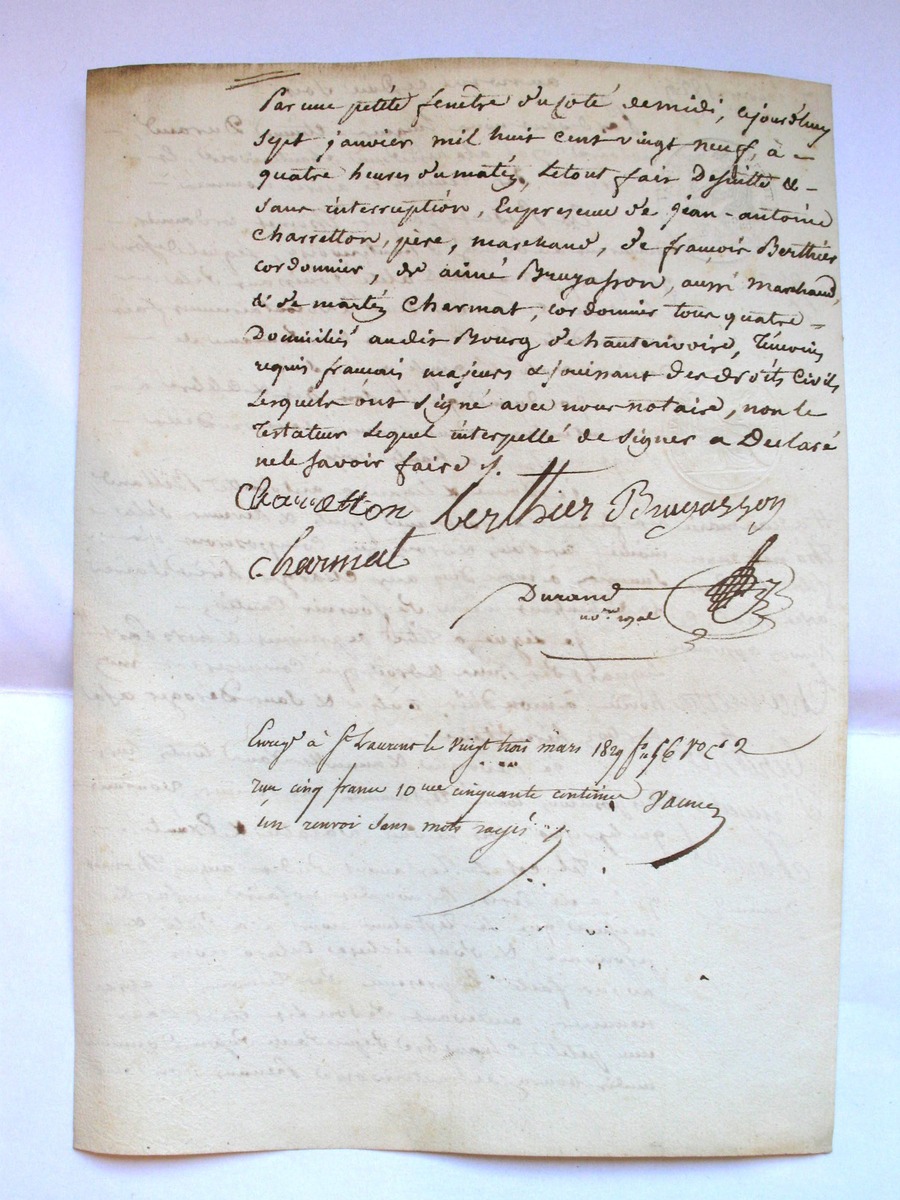 Par une petite fenêtre du coté de midi, cejourdhuy
sept janvier mil huit cent vingt neuf, à -
quatre heures du matin, Letout fait Desuitte & -
sans interruption, En presence de jean-antoine
Charretton, père, marchand, de françois Berthier
cordonnier, de aimé Bruyasson, aussi marchand,
& de martin Charmat, cordonnier tous quatre -
Domiciliés audit Bourg de hauterivoire, Témoins
requis français majeurs & jouissant des droits Civils
Lesquels ont signé avec nous notaire, non le
Testateur Lequel interpellé de signer a Declaré
ne le savoir faire ./.
Charretton Berthier Bruyasson
Charmat
Durand
no.re royal
Enregé à St Laurent le vingt trois mars 1829 fo 56 Vo Ce 2
reçu cinq francs 10me cinquante centimes
un renvoi sans mots rayés ./.